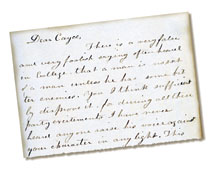 Dear Cayce,
There is a very false
and very foolish saying often heard
in College, that a man is not
of a man unless he has some bit
ter enemies. You I think sufficient
ly disprove it, for during all these
party excitements I have never
heard anyone raise his voice against
your character in any light. This